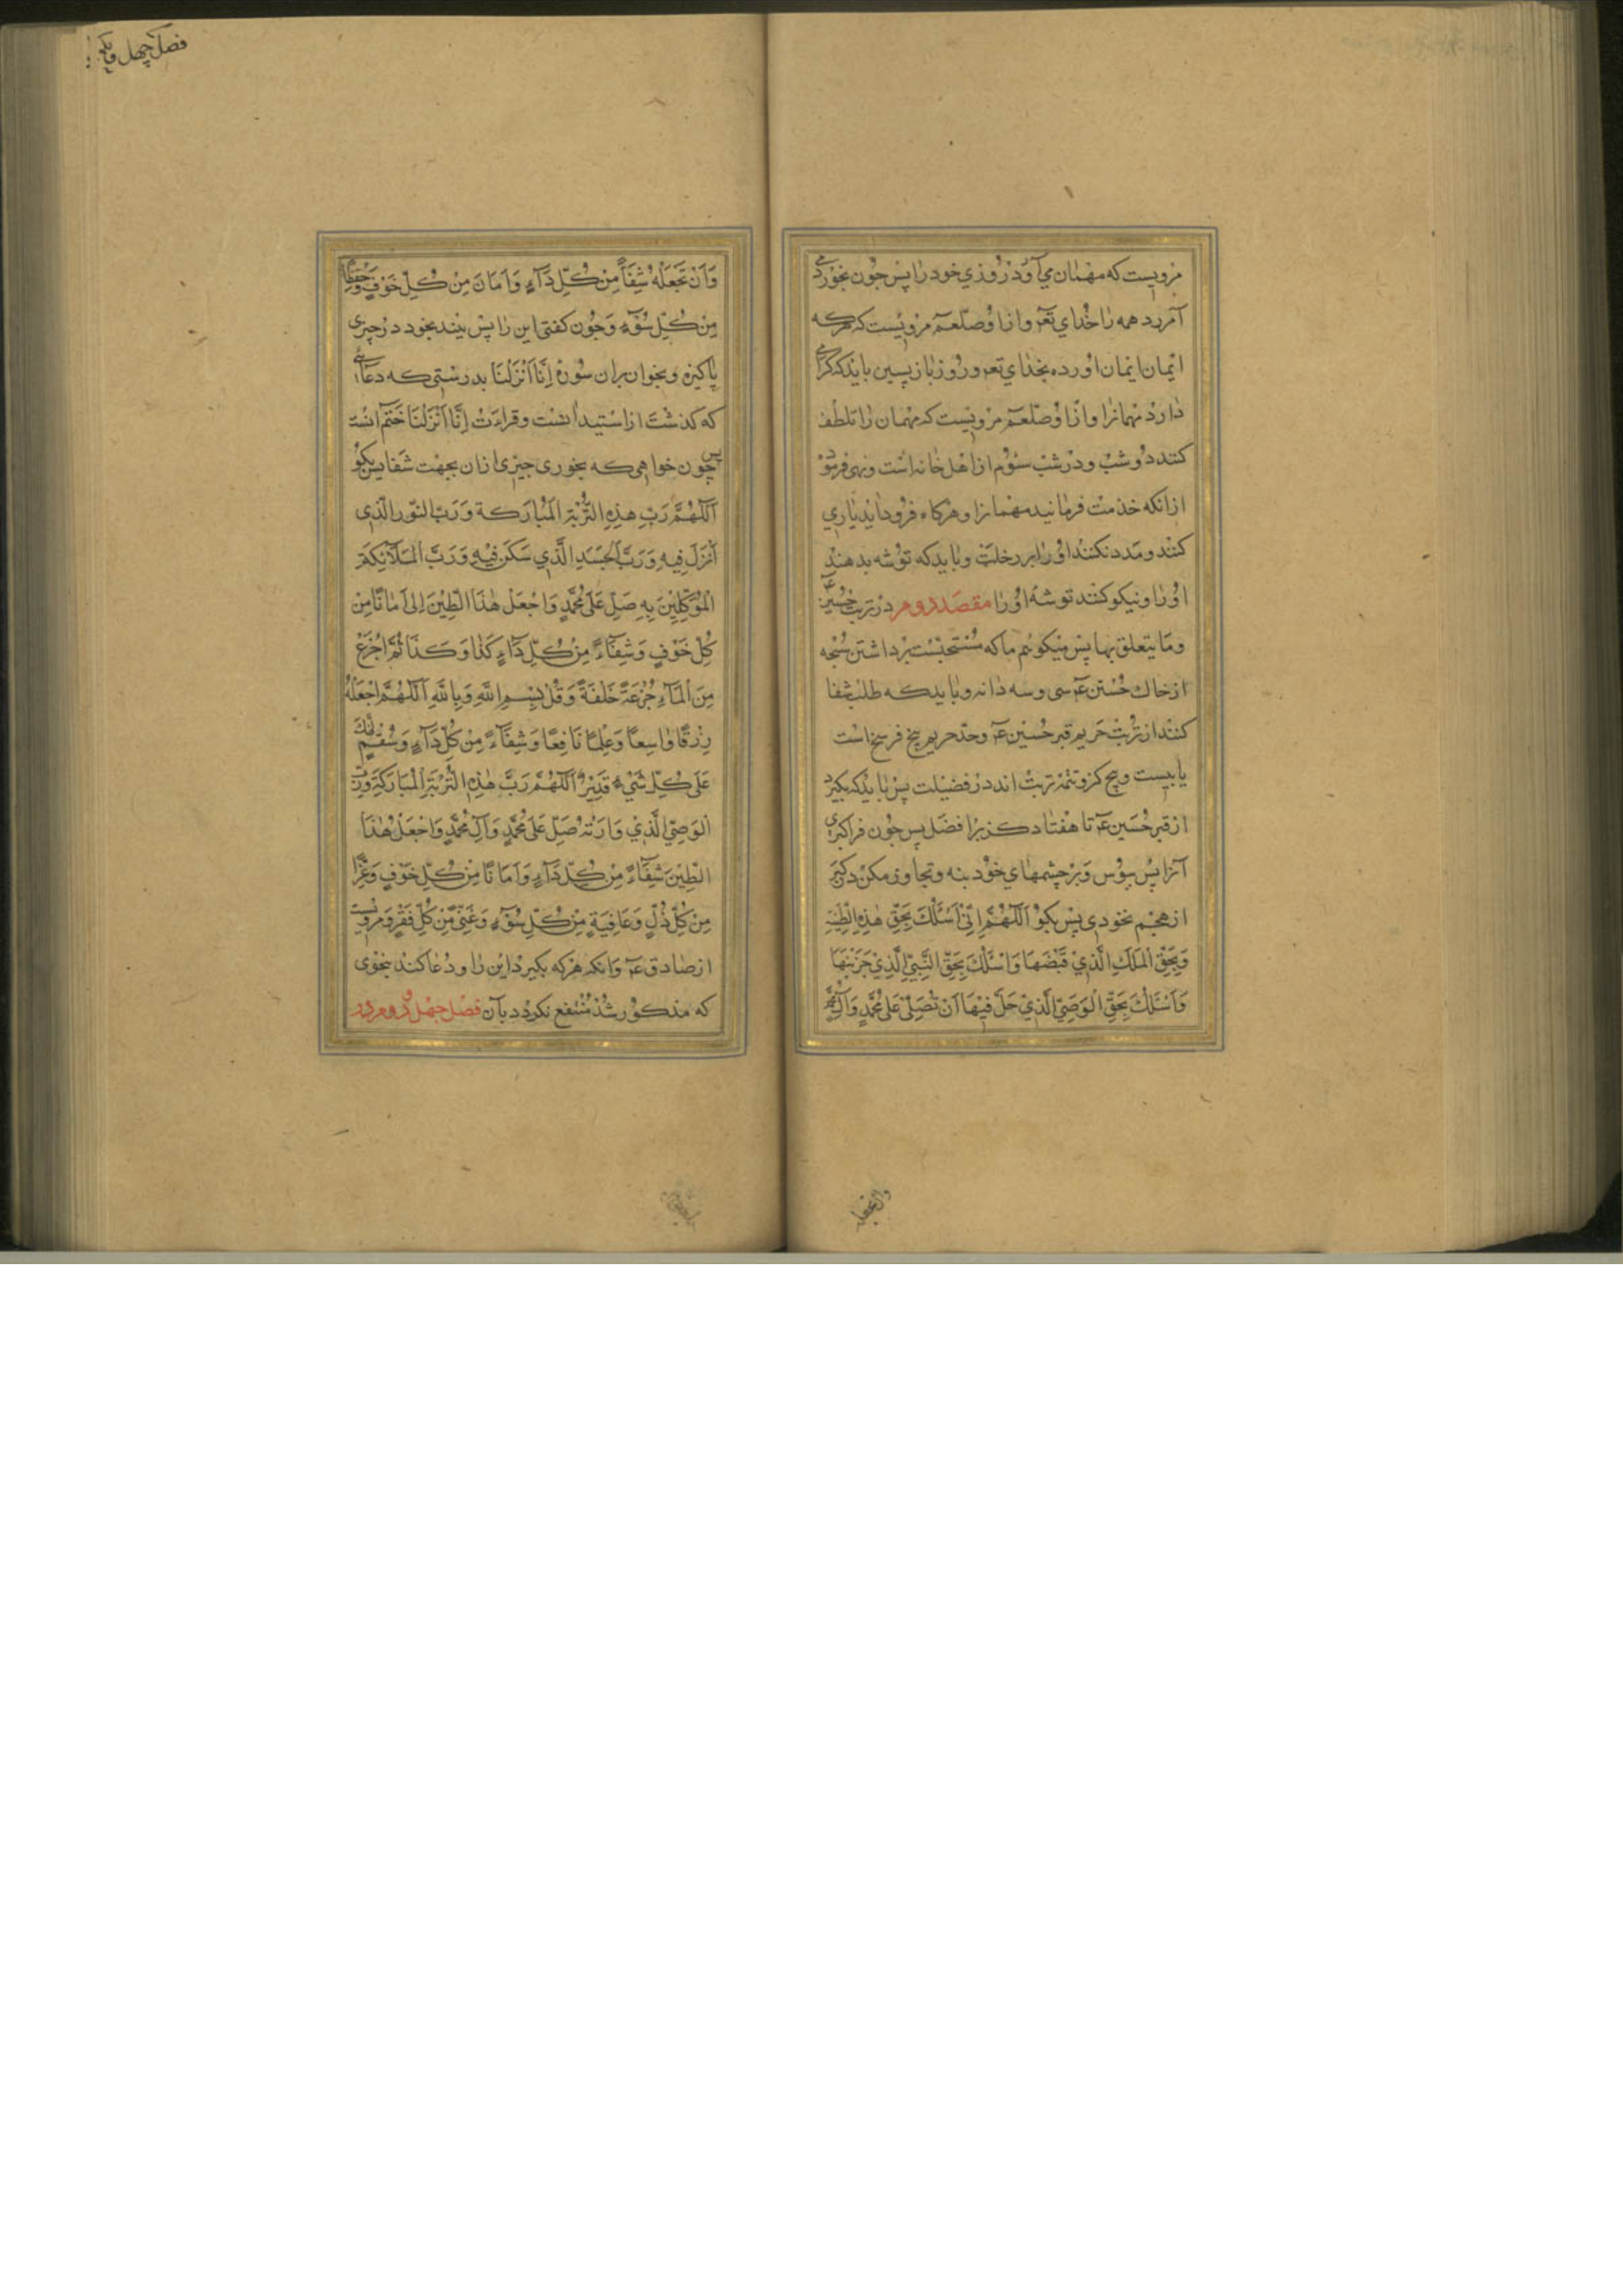 مرویست که مهمان می آورد روزی خود را پس چون بخورد می
آمرزد همه را خدای تعه و از او صلعم مرویست که هرکه
ایمان اورده بخدای تعه و روز بازپسین باید که گرامی
دارد مهمانرا و از او صلعم مرویست که مهمان را تلطف
کنند دو شب و در شب سوم از اهل خانه است و نهی فرمود
از انکه خدمت فرمایند مهمانرا و هرکاه فرود اید یاری
کنند و مدد نکنند او را بر رحلت و باید که توشه بدهند
او را و نیکو کنند توشهٔ او را مقصد دوم در تربت حسین
و ما یتعلق بها پس میکوئیم ما که مستحبست برداشتن سبحه
از خاك حسین عه سی و سه دانه و باید که طلب شفا
کنند از تربت حریم قبر حسین عه و حد حریم پنج فرسخ است
یا بیست و پنج کز و تربت اند در فضیلت پس باید که بکیرد
از قبر حسین عه تا هفتاد کز بر افضل پس چون فراکیری
آنرا پس ببوس و بر چشمهای خود بنه و تجاوز مکن در کبر
از حجم نخودی پس بکو اَللّٰهُمَّ اِنِّی اَسْئَلُكَ بِحَقِّ هٰذِهِ الطِّینَةِ
وَبِحَقِّ الْمَلَكِ الَّذِیْ قَبَضَهَا وَاَسْئَلُكَ بِحَقِّ النَّبِیِّ الَّذِیْ خَزَنَهَا
وَاَسْئَلُكَ بِحَقِّ الْوَصِیِّ الَّذِیْ حَلَّ فِیْهَا اَنْ تُصَلِّیَ عَلٰی مُحَمَّدٍ وَاٰلِ مُحَمَّدٍ
وان تجعله
فصل چهل و یکم
وَاَنْ تَجْعَلَهُ شِفَاءً مِنْ كُلِّ دَآءٍ وَاَمَانًا مِنْ كُلِّ خَوْفٍ وَحِفْظًا
مِنْ كُلِّ سُوْءٍ و چون کفتی این را پس بند بخود در چیزی
پاکیزه و بخوان بران سوره اِنَّا اَنْزَلْنَا بدرستی که دعائی
که کذشت از استیدانست و قراءت اِنَّا اَنْزَلْنَا ختم انست
پس چون خواهی که بخوری چیزی ازان بجهت شفا پس بکو
اَللّٰهُمَّ رَبَّ هٰذِهِ التُّرْبَةِ الْمُبَارَكَةِ وَرَبَّ النُّوْرِ الَّذِی
اُنْزِلَ فِیْهِ وَرَبَّ الْجَسَدِ الَّذِیْ سَكَنَ فِیْهِ وَرَبَّ الْمَلَآئِكَةِ
الْمُوَكَّلِیْنَ بِهِ صَلِّ عَلٰی مُحَمَّدٍ وَاجْعَلْ هٰذَا الطِّیْنَ لِیْ اَمَانًا مِنْ
كُلِّ خَوْفٍ وَشِفَآءً مِنْ كُلِّ دَآءٍ كَذَا وَكَذَا ثُمَّ اجْرَعْ
مِنَ الْمَآءِ جُرْعَةً خَلْفَهُ وَقُلْ بِسْمِ اللّٰهِ وَبِاللّٰهِ اَللّٰهُمَّ اجْعَلْهُ
رِزْقًا وَاسِعًا وَعِلْمًا نَافِعًا وَشِفَآءً مِنْ كُلِّ دَآءٍ وَسُقْمٍ اِنَّكَ
عَلٰی كُلِّ شَیْءٍ قَدِیْرٌ اَللّٰهُمَّ رَبَّ هٰذِهِ التُّرْبَةِ الْمُبَارَكَةِ وَرَبَّ
الْوَصِیِّ الَّذِیْ وَارَتْهُ صَلِّ عَلٰی مُحَمَّدٍ وَاٰلِ مُحَمَّدٍ وَاجْعَلْ هٰذَا
الطِّیْنَ شِفَآءً مِنْ كُلِّ دَآءٍ وَاَمَانًا مِنْ كُلِّ خَوْفٍ وَعِزًّا
مِنْ كُلِّ ذُلٍّ وَعَافِیَةً مِنْ كُلِّ سُوْءٍ وَغِنًی مِنْ كُلِّ فَقْرٍ و مرویست
از صادق عه و انکه هرکه بکیرد این را و دعا کند بنحوی
که مذکور شد منتفع نکردد بآن فصل چهل و دوم در